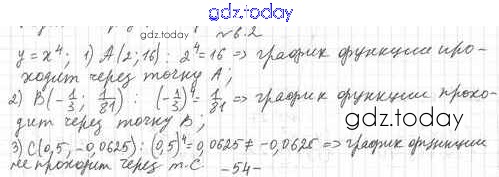 gdz.today
№6.2
gdz.today
y = x⁴; 1) A(2; 16) : 2⁴ = 16 => график функции про-
ходит через точку A;
2) B(-1/3; 1/81) : (-1/3)⁴ = 1/81 => график функции прохо-
дит через точку B;
gdz.today
3) C(0,5; -0,0625) : (0,5)⁴ = 0,0625 ≠ -0,0625 => график функции
не проходит через т. C.
-54-